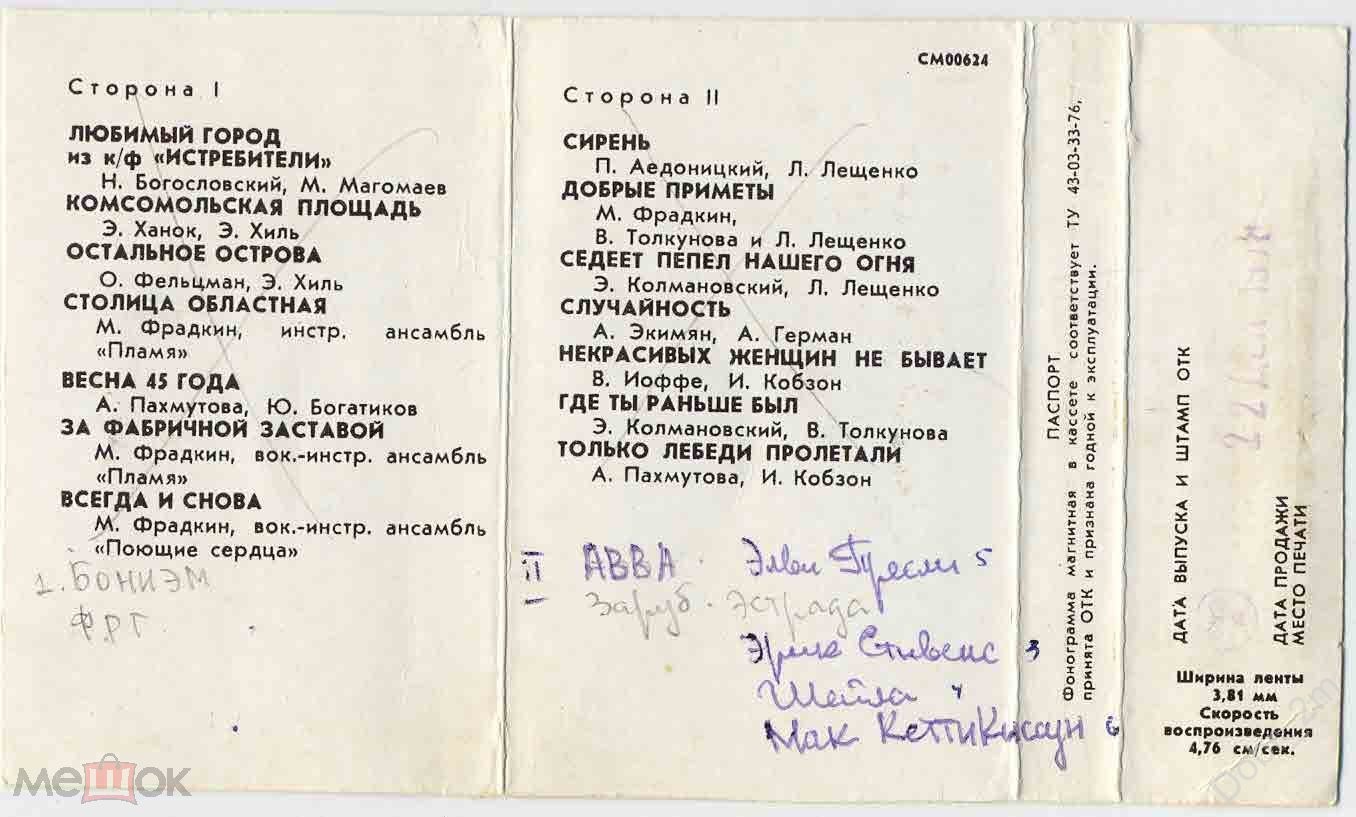 Сторона I
ЛЮБИМЫЙ ГОРОД
из к/ф «ИСТРЕБИТЕЛИ»
Н. Богословский, М. Магомаев
КОМСОМОЛЬСКАЯ ПЛОЩАДЬ
Э. Ханок, Э. Хиль
ОСТАЛЬНОЕ ОСТРОВА
О. Фельцман, Э. Хиль
СТОЛИЦА ОБЛАСТНАЯ
М. Фрадкин, инстр. ансамбль
«Пламя»
ВЕСНА 45 ГОДА
А. Пахмутова, Ю. Богатиков
ЗА ФАБРИЧНОЙ ЗАСТАВОЙ
М. Фрадкин, вок.-инстр. ансамбль
«Пламя»
ВСЕГДА И СНОВА
М. Фрадкин, вок.-инстр. ансамбль
«Поющие сердца»
1. БОНИЭМ
ФРГ
СМ00624
Сторона II
СИРЕНЬ
П. Аедоницкий, Л. Лещенко
ДОБРЫЕ ПРИМЕТЫ
М. Фрадкин,
В. Толкунова и Л. Лещенко
СЕДЕЕТ ПЕПЕЛ НАШЕГО ОГНЯ
Э. Колмановский, Л. Лещенко
СЛУЧАЙНОСТЬ
А. Экимян, А. Герман
НЕКРАСИВЫХ ЖЕНЩИН НЕ БЫВАЕТ
В. Иоффе, И. Кобзон
ГДЕ ТЫ РАНЬШЕ БЫЛ
Э. Колмановский, В. Толкунова
ТОЛЬКО ЛЕБЕДИ ПРОЛЕТАЛИ
А. Пахмутова, И. Кобзон
II АВВА. Элви Пресли 5
Заруб. Эстрада
Эрик Стивенс 3
Шейла 4
Мак Кетти Киссун 6
ПАСПОРТ
Фонограмма магнитная в кассете соответствует ТУ 43-03-33-76,
принята ОТК и признана годной к эксплуатации.
ДАТА ВЫПУСКА И ШТАМП ОТК
ДАТА ПРОДАЖИ
МЕСТО ПЕЧАТИ
Ширина ленты
3,81 мм
Скорость
воспроизведения
4,76 см/сек.
мешок